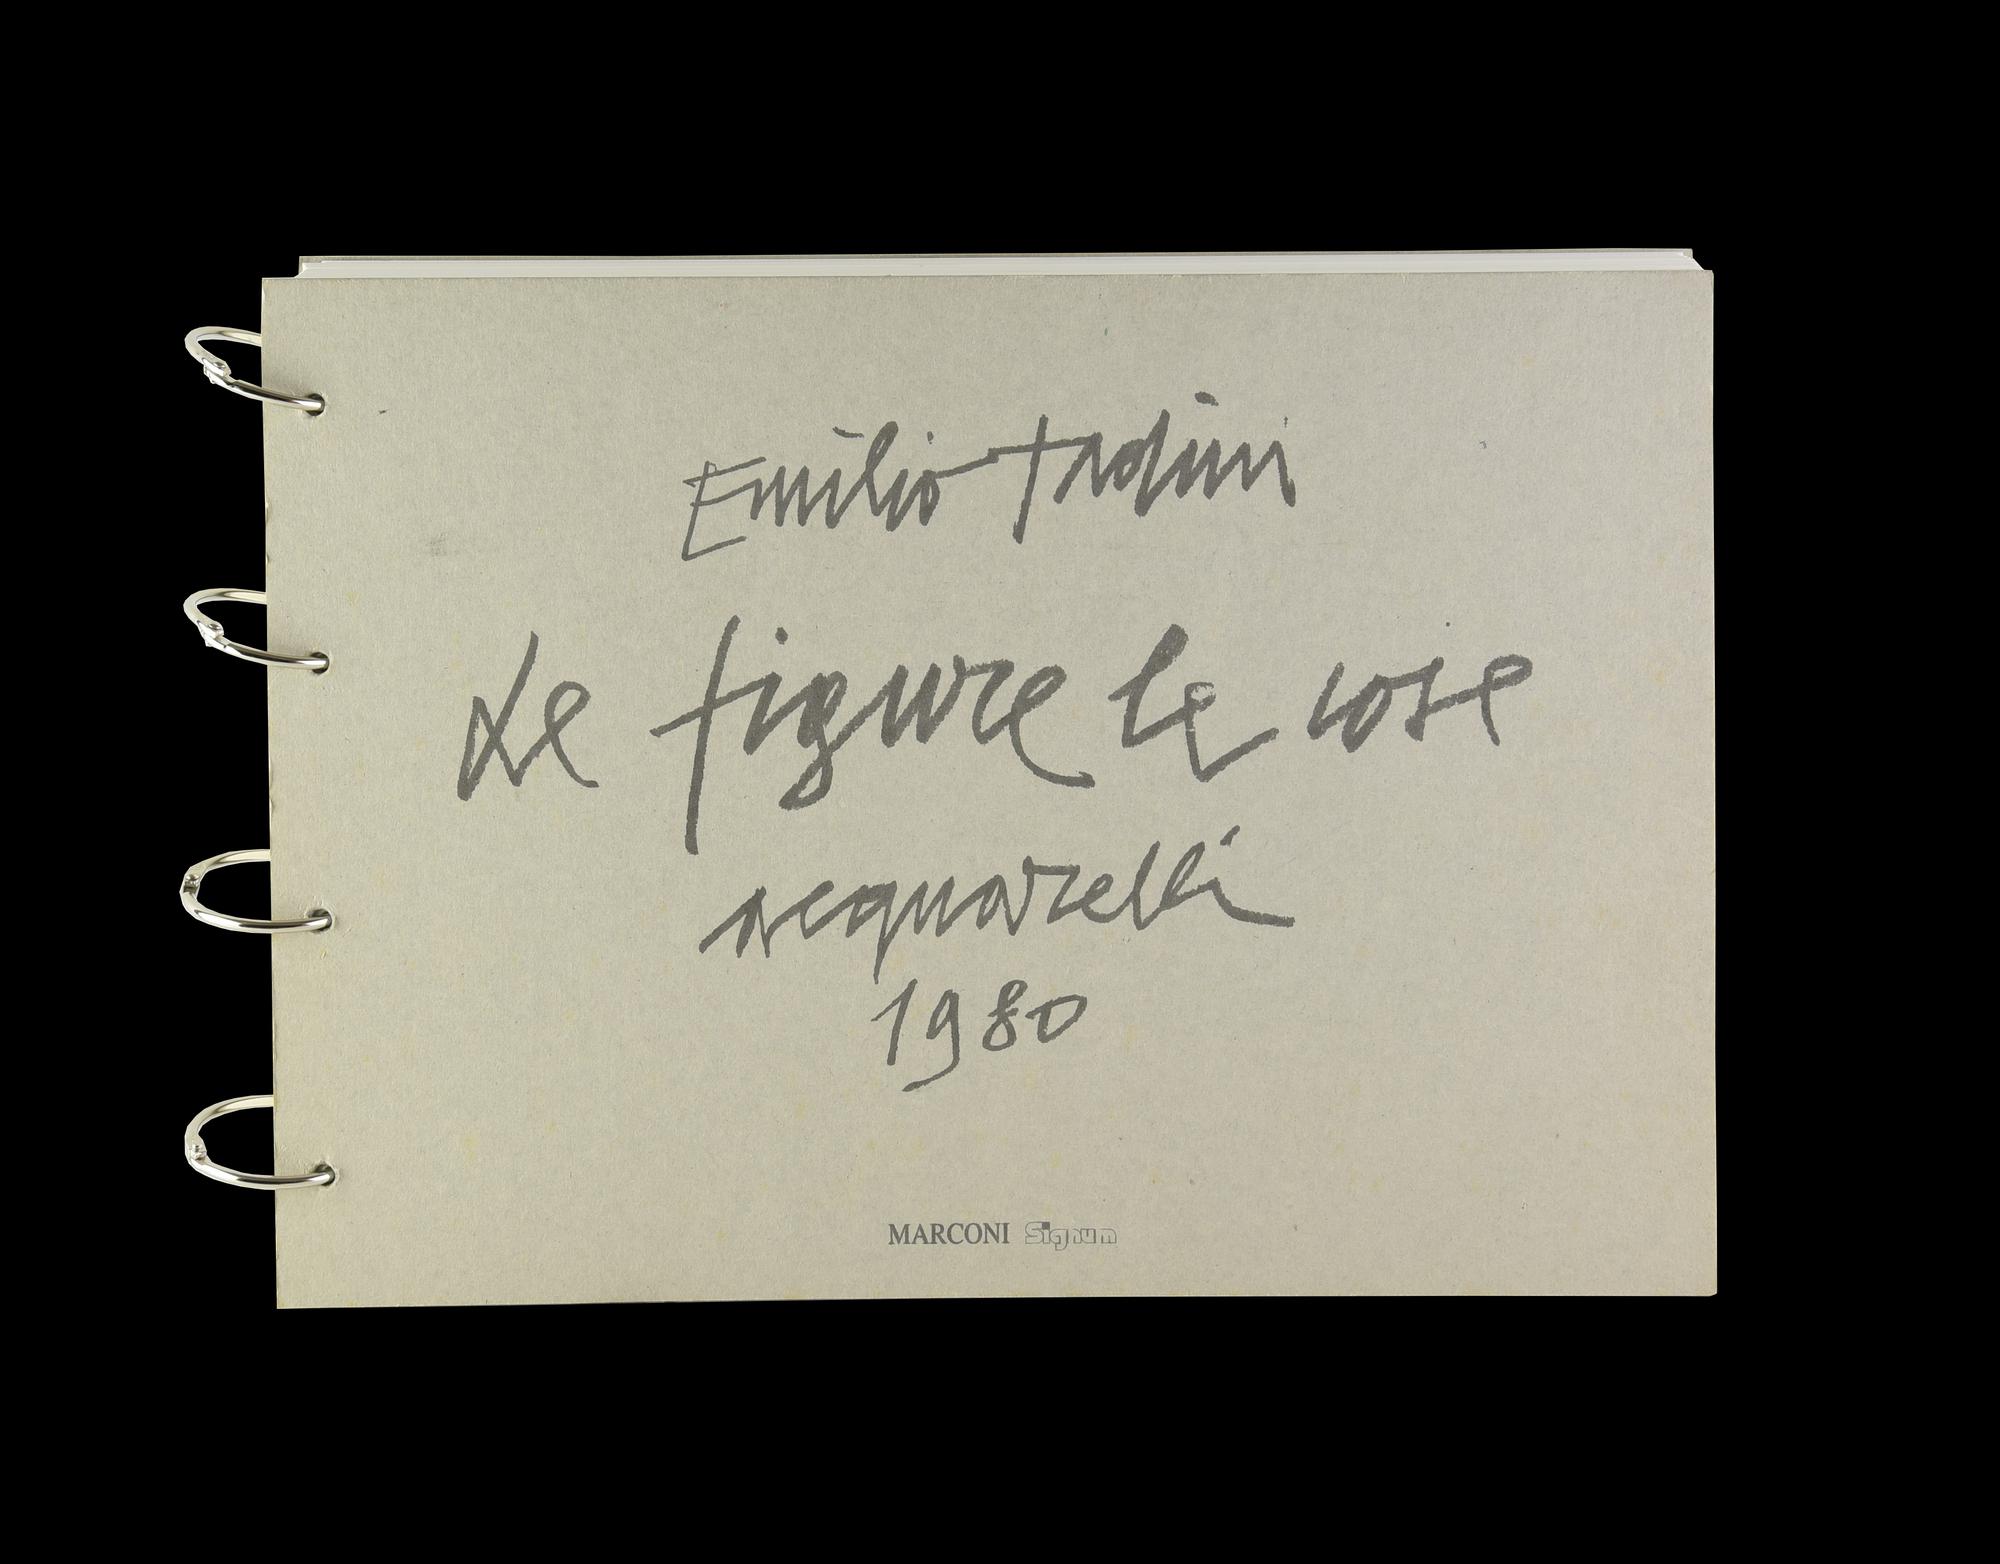 Emilio Tadini
Le figure le cose
acquarelli
1980
MARCONI Signum